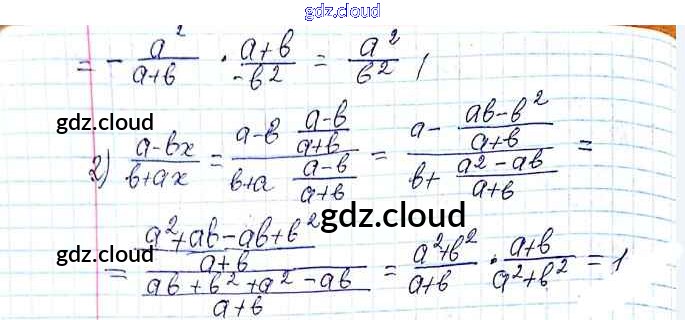 gdz.cloud
= - a²/(a+b) · (a+b)/(-b²) = a²/b² ;
gdz.cloud
2) (a-bx)/(b+ax) = (a-b (a-b)/(a+b))/(b+a (a-b)/(a+b)) = (a - (ab-b²)/(a+b))/(b + (a²-ab)/(a+b)) =
gdz.cloud
gdz.cloud
= ((a²+ab-ab+b²)/(a+b))/((ab+b²+a²-ab)/(a+b)) = (a²+b²)/(a+b) · (a+b)/(a²+b²) = 1